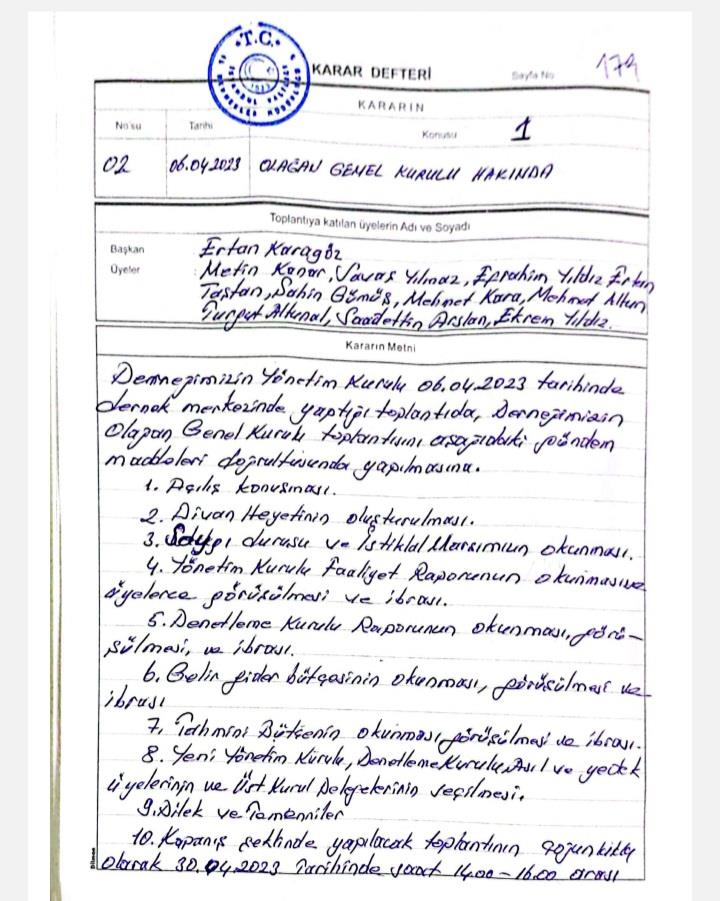 T.C.
KARAR DEFTERİ
Sayfa No 179
KARARIN
No'su Tarihi Konusu 1
02 06.04.2023 OLAĞAN GENEL KURULU HAKINDA
Toplantıya katılan üyelerin Adı ve Soyadı
Başkan Ertan Karagöz
Üyeler : Metin Konar, Savaş Yılmaz, Eprahim Yıldız Ertan
Taştan, Şahin Gümüş, Mehmet Kara, Mehmet Altun
Turgut Altunal, Saadettin Arslan, Ekrem Yıldız.
Kararın Metni
Derneğimizin Yönetim Kurulu 06.04.2023 tarihinde
dernek merkezinde yaptığı toplantıda, Derneğimizin
Olağan Genel Kurulu toplantısını aşağıdaki gündem
maddeleri doğrultusunda yapılmasına.
1. Açılış konuşması.
2. Divan Heyetinin oluşturulması.
3. Saygı duruşu ve İstiklal Marşımızın okunması.
4. Yönetim Kurulu Faaliyet Raporunun okunması ve
üyelerce görüşülmesi ve ibrası.
5. Denetleme Kurulu Raporunun okunması, görü-
şülmesi, ve ibrası.
6. Gelir gider bütçesinin okunması, görüşülmesi ve
ibrası
7. Tahmini Bütçenin okunması, görüşülmesi ve ibrası.
8. Yeni Yönetim Kurulu, Denetleme Kurulu, Asıl ve yedek
üyelerinin ve Üst Kurul Delegelerinin seçilmesi.
9. Dilek ve Temenniler
10. Kapanış şeklinde yapılacak toplantının çoğunluklu
olarak 30.04.2023 Tarihinde saat 14.00 - 16.00 arası
Dilman